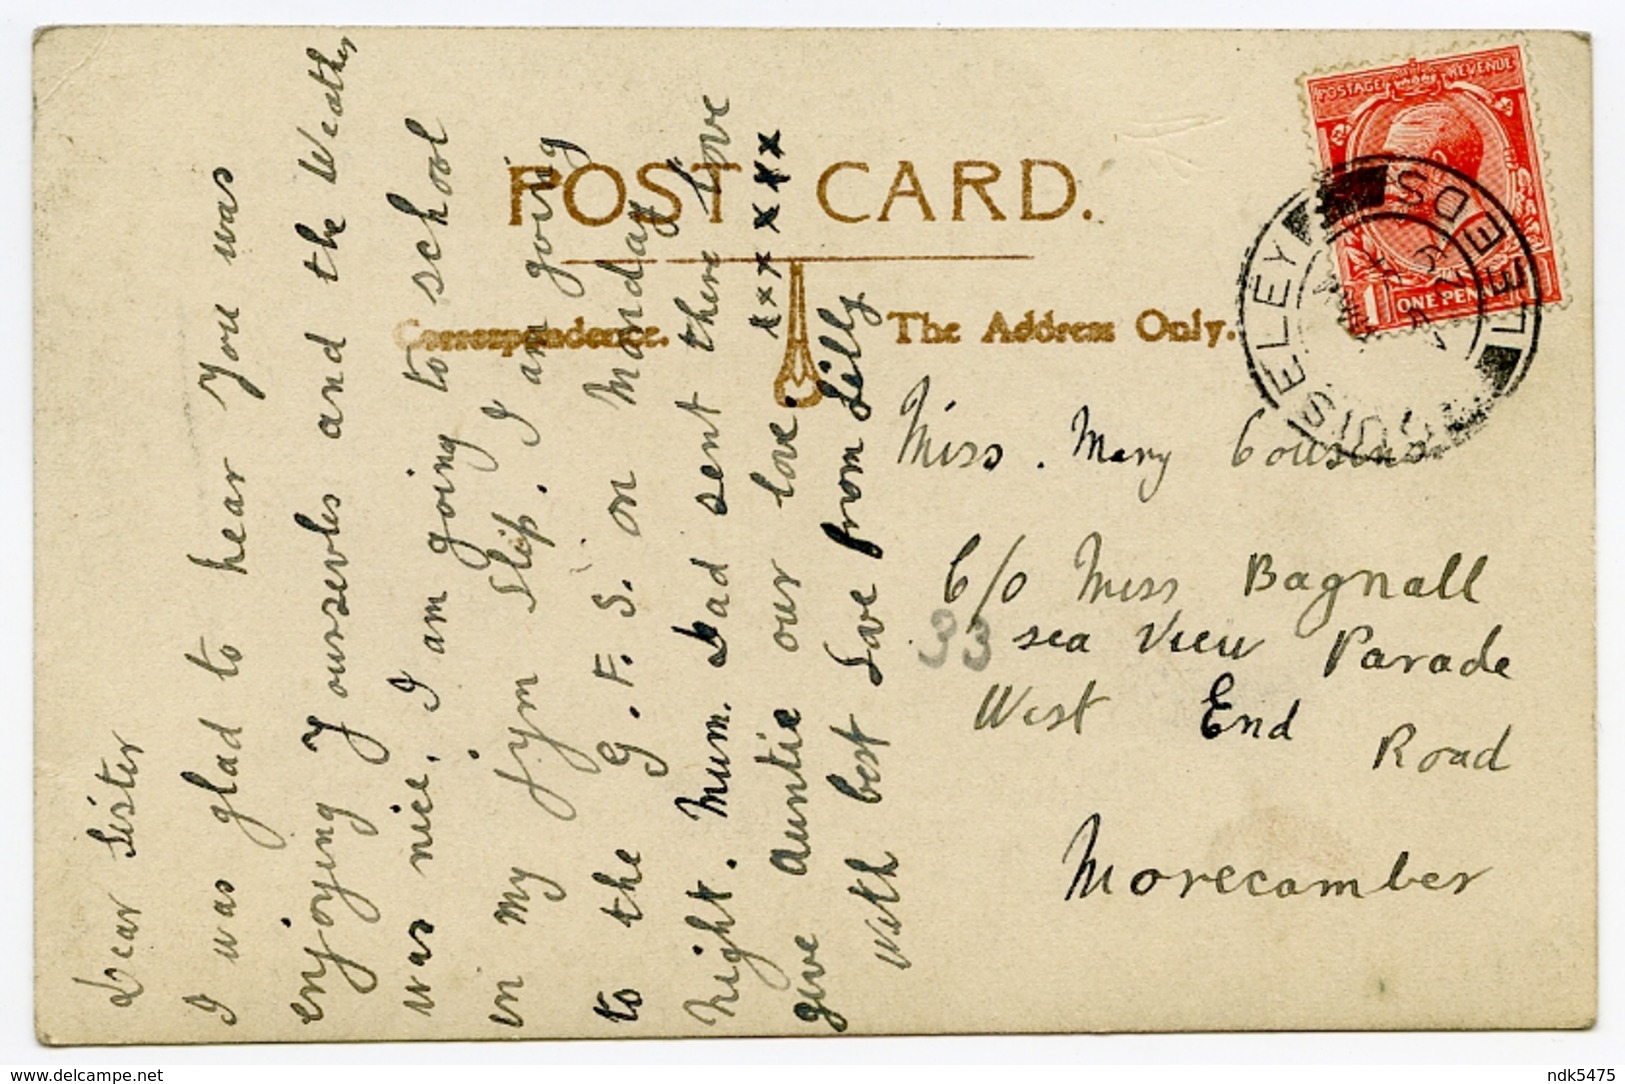 POST CARD.
Correspondence.
The Address Only.
Dear Sister
I was glad to hear you was
enjoying yourselves and the Weather
was nice. I am going to school
in my jym slip. I am going
to the G. F. S. on Monday
night. Mum. Dad sent there love
give Auntie our love. xxx xx xx
With best Love from Lilly
Miss. Mary Cousins
C/O Miss Bagnall
33 sea View Parade
West End Road
Morecamber
POSTAGE REVENUE
1 ONE PENNY
ELEY
LEEDS
delcampe.net
ndk5475